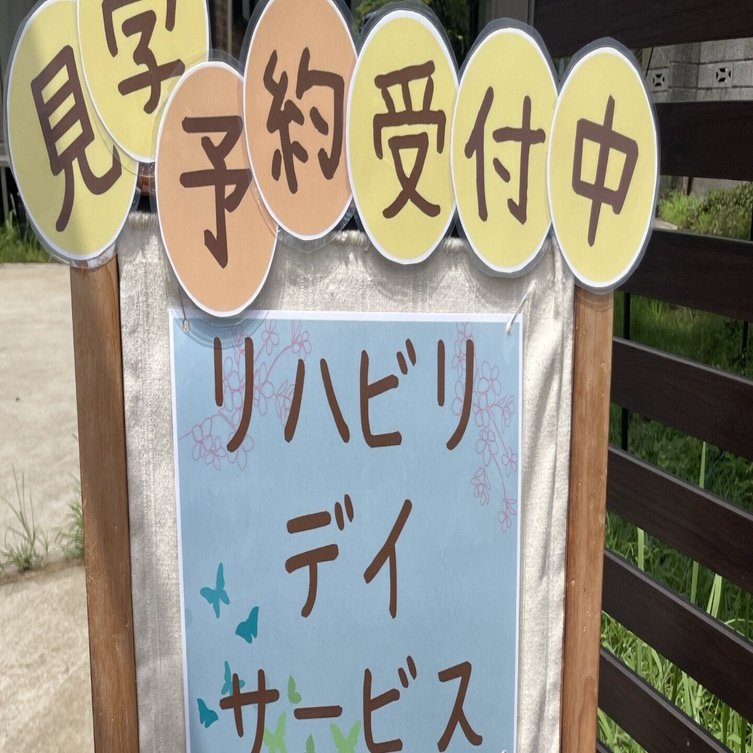 見学予約受付中
リハビリ
デイ
サービス